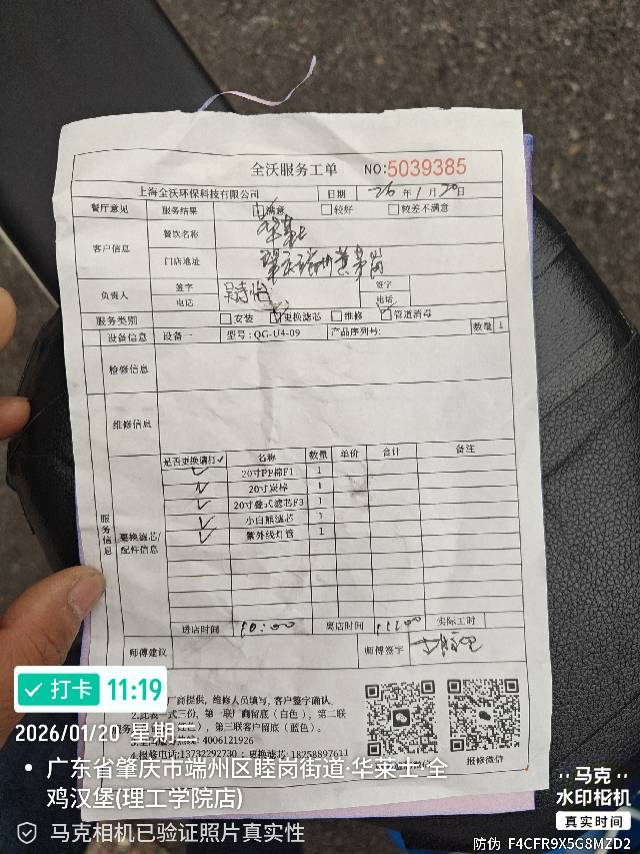 全沃服务工单 NO:5039385
上海全沃环保科技有限公司 日期 26年1月20日
餐厅意见 服务结果 满意 较好 较差不满意
客户信息 餐饮名称 华莱士
门店地址 肇庆端州黄茅岗
负责人 签字 吴诗怡 签字
电话 电话
服务类别 安装 更换滤芯 维修 管道消毒
设备信息 设备一 型号:QG-U4-09 产品序列号: 数量 1
检修信息
维修信息
服务信息
更换滤芯/配件信息
是否更换请打✓ 名称 数量 单价 合计 备注
✓ 20寸PP棉F1 1
✓ 20寸炭棒 1
✓ 20寸叠式滤芯F3 1
✓ 小白熊滤芯 1
✓ 紫外线灯管 1
进店时间 10:00 离店时间 11:00 实际工时
师傅建议 师傅签字
厂商提供,维修人员填写,客户签字确认。
2.此表一式三份,第一联厂商留底(白色),第二联
第三联客户留底(蓝色)。
热线:4006121926
4.报修电话:13732292730 更换滤芯:18258897611
报修微信
打卡 11:19
2026/01/20 星期二
广东省肇庆市端州区睦岗街道·华莱士·全
鸡汉堡(理工学院店)
马克相机已验证照片真实性
马克
水印相机
真实时间
防伪 F4CFR9X5G8MZD2